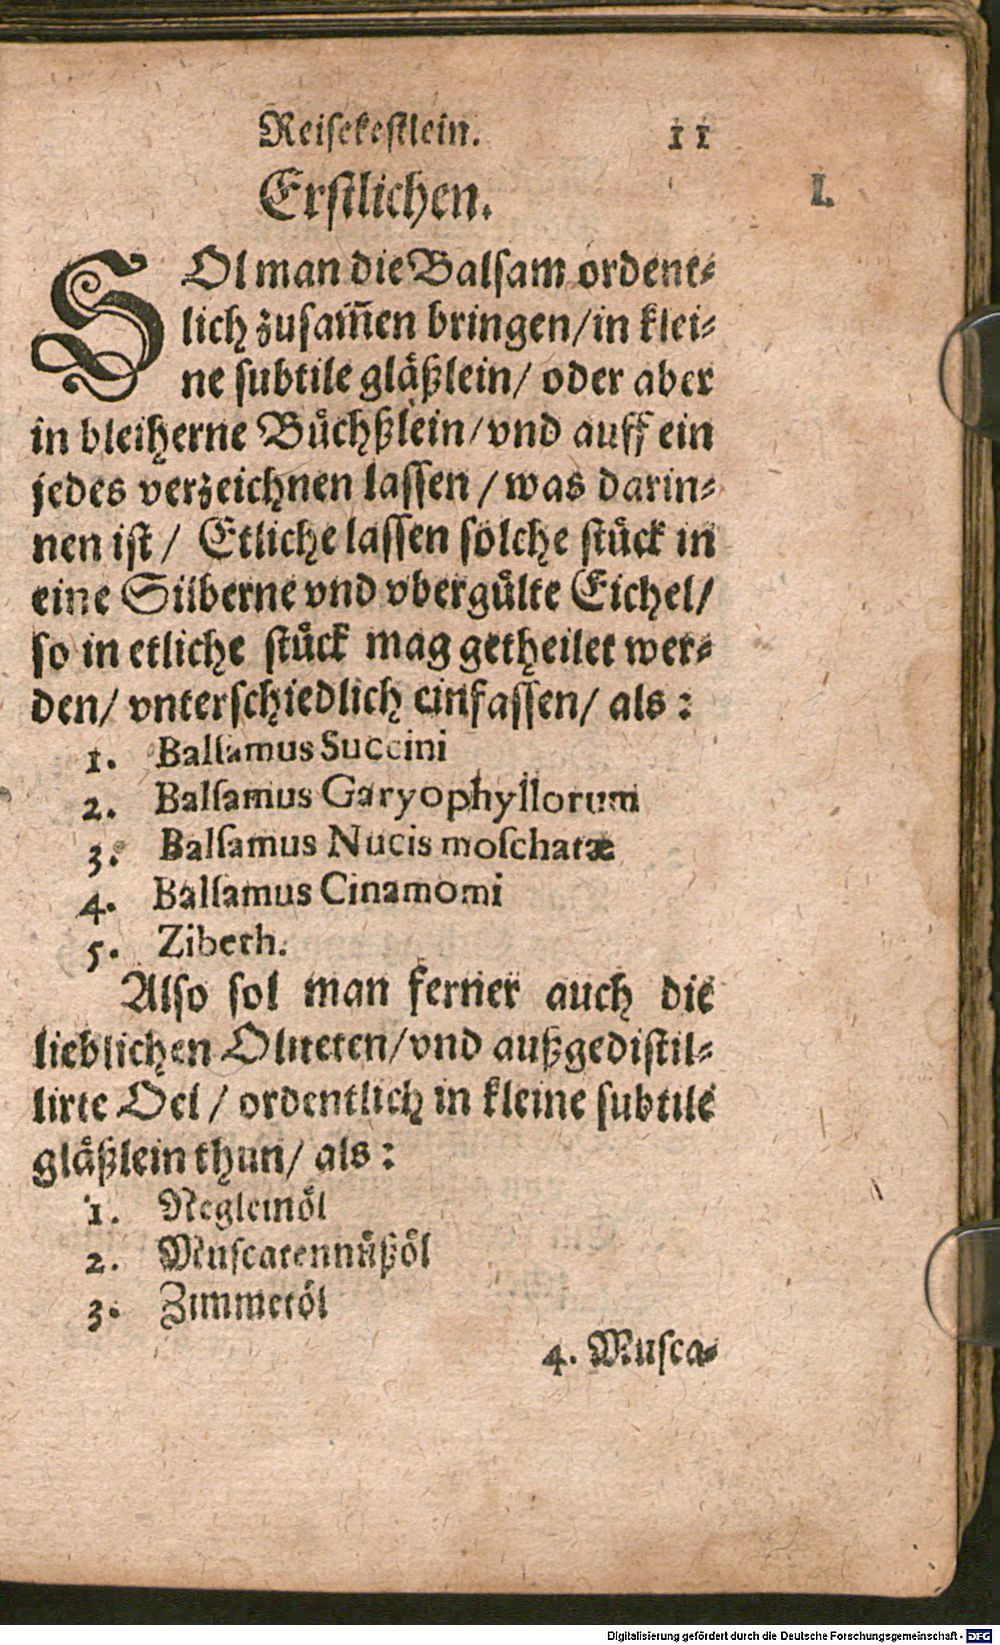 Reiſekeſtlein. 11
Erſtlichen.
I.
SOl man die Balſam ordent⸗
lich zuſam̃en bringen/in klei⸗
ne ſubtile glaͤßlein/ oder aber
in bleiherne Buͤchßlein/vnd auff ein
jedes verzeichnen laſſen / was darin⸗
nen iſt / Etliche laſſen ſolche ſtuͤck in
eine Silberne vnd vberguͤlte Eichel/
ſo in etliche ſtuͤck mag getheilet wer⸗
den/ vnterſchiedlich einfaſſen/ als :
1. Balſamus Succini
2. Balſamus Garyophyllorum
3. Balſamus Nucis moſchatæ
4. Balſamus Cinamomi
5. Zibeth.
Alſo ſol man ferner auch die
lieblichen Oliteten/vnd außgediſtil⸗
lirte Oel / ordentlich in kleine ſubtile
glaͤßlein thun/ als :
1. Negleinoͤl
2. Muſcatennuͤßoͤl
3. Zimmetoͤl
4. Muſca⸗
Digitalisierung gefördert durch die Deutsche Forschungsgemeinschaft - DFG